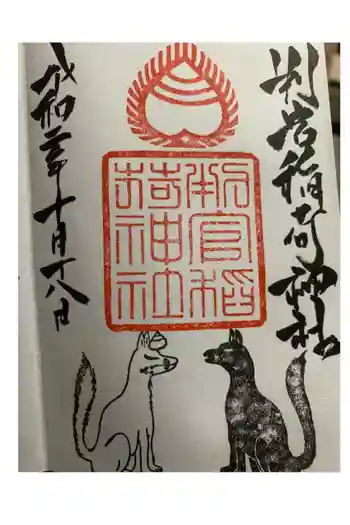 判官稲荷神社
判官稲
荷神社
令和二年十月十八日